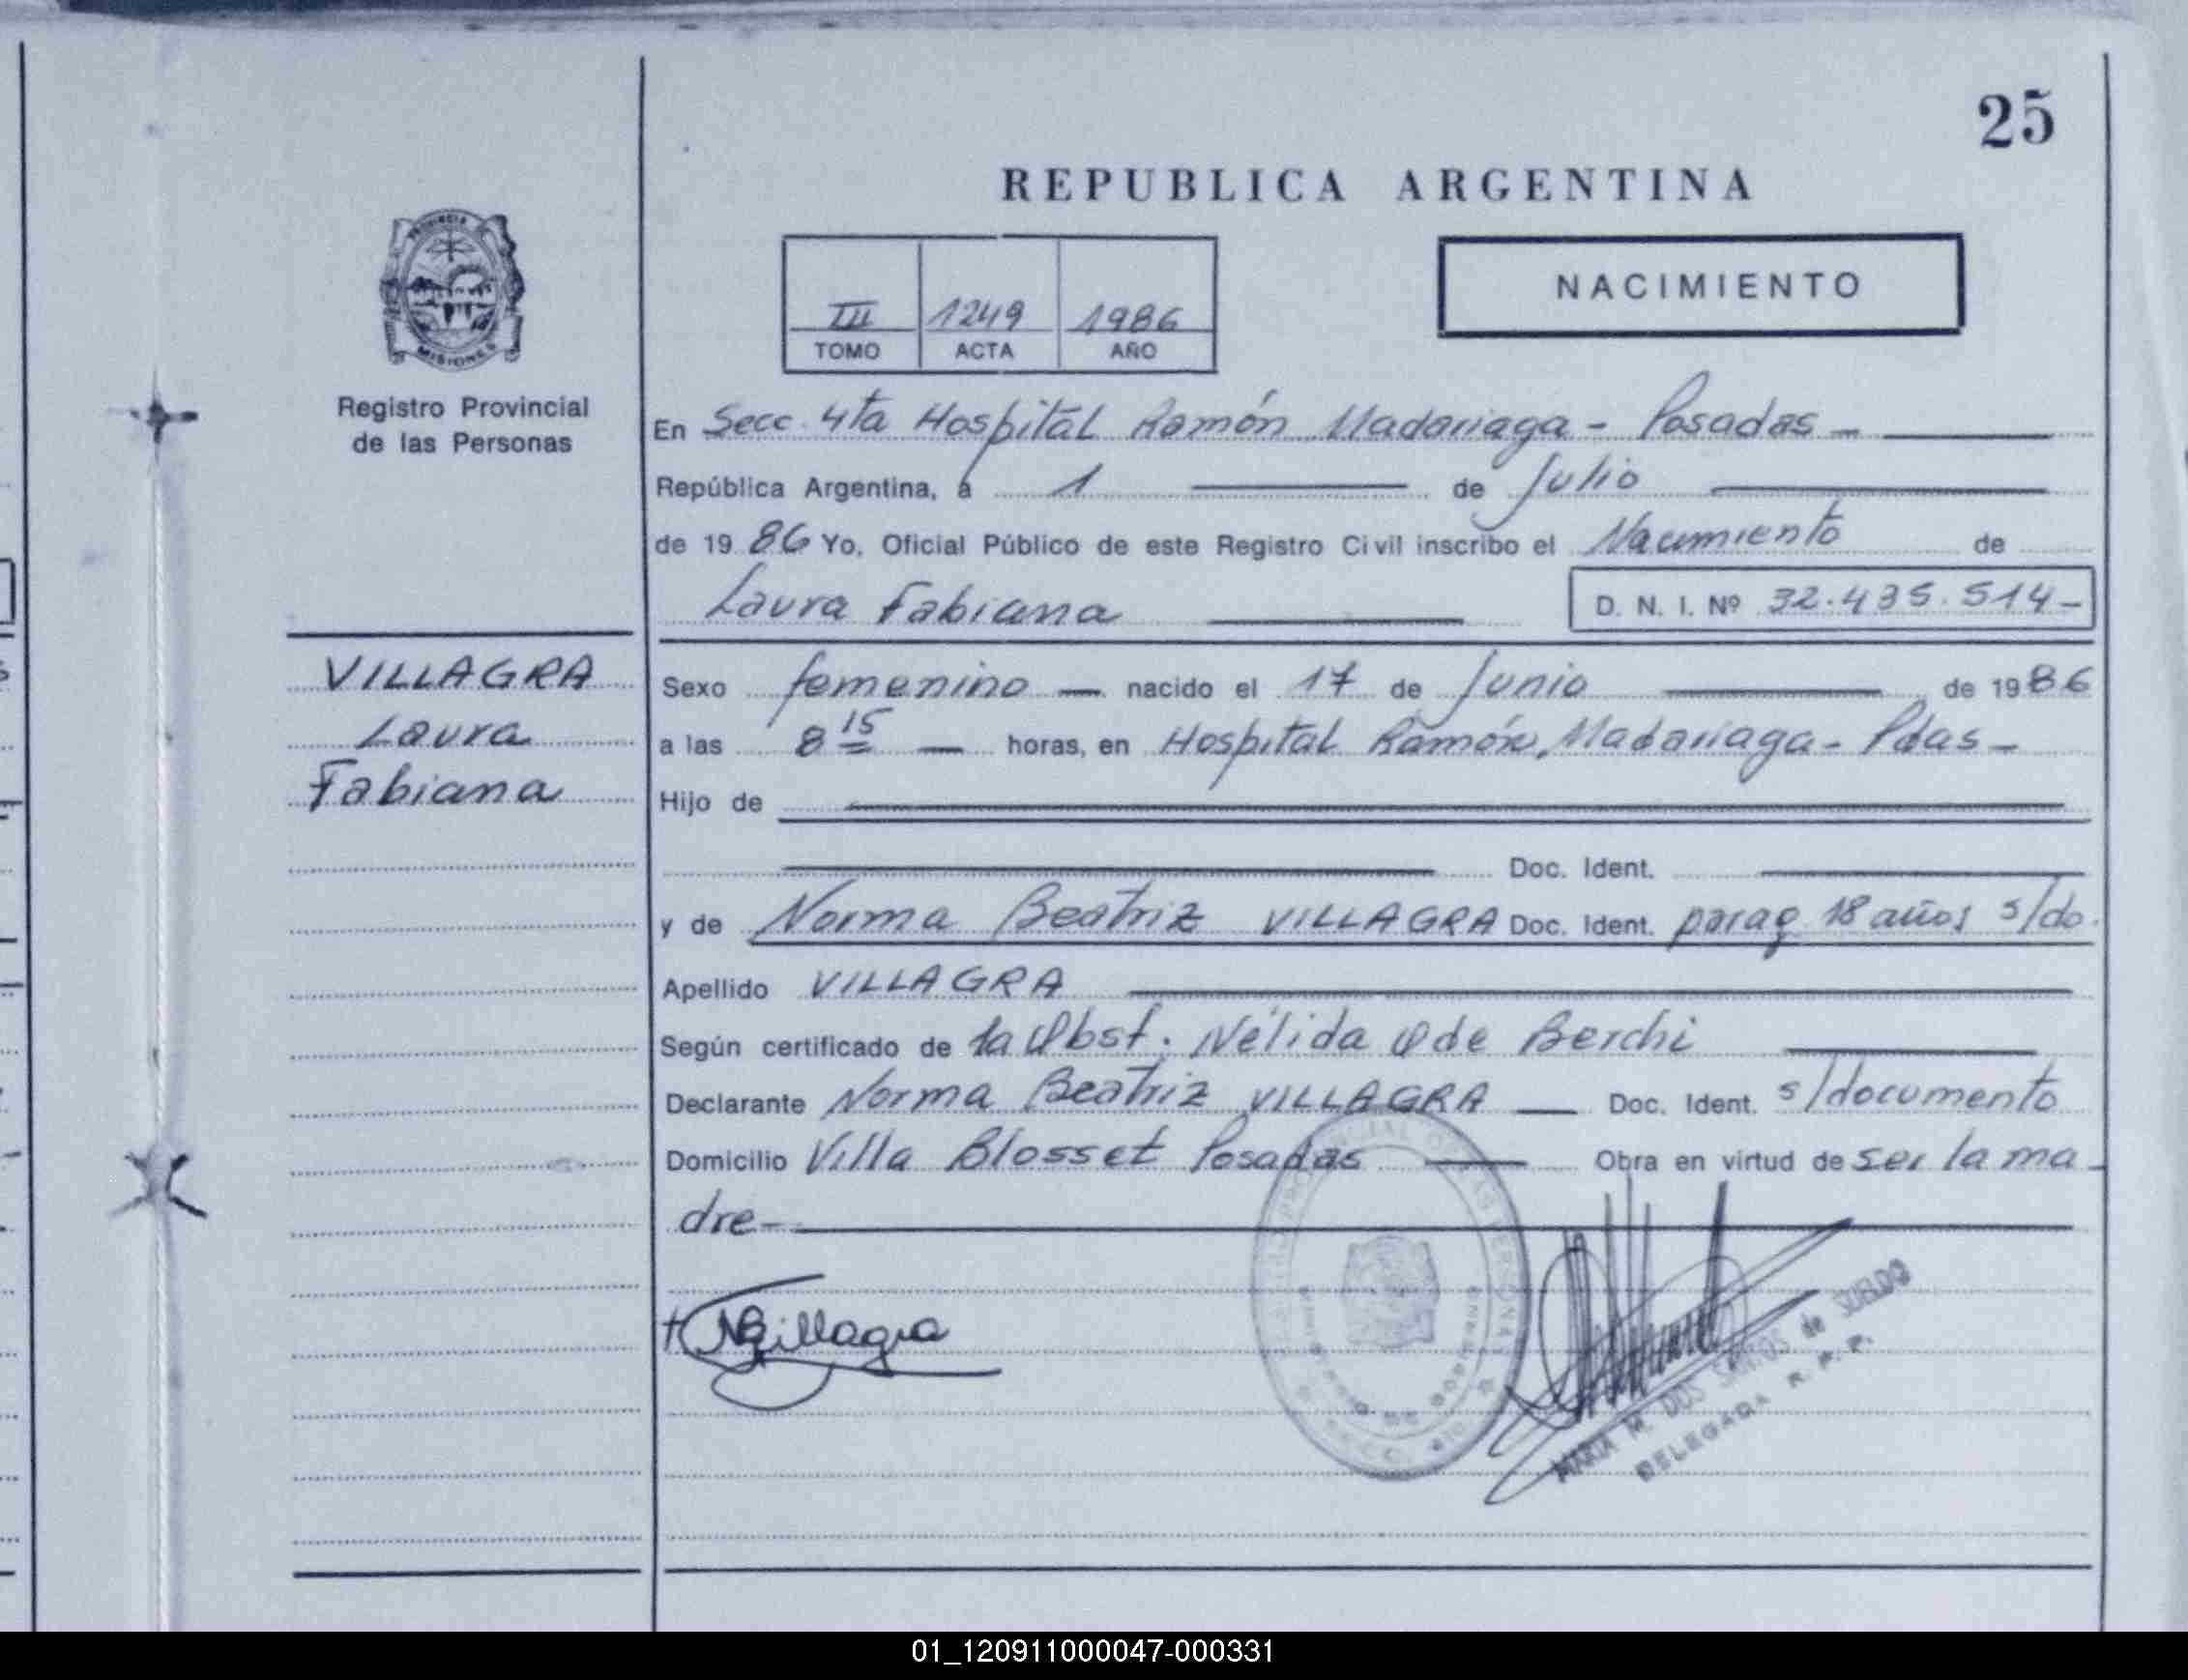 25
REPUBLICA ARGENTINA
NACIMIENTO
III 1249 1986
TOMO ACTA AÑO
PROVINCIA
MISIONES
Registro Provincial
de las Personas
VILLAGRA
Laura
Fabiana
En Secc. 4ta Hospital Ramón Madariaga - Posadas -
República Argentina, a 1 de Julio
de 1986 Yo, Oficial Público de este Registro Civil inscribo el Nacimiento de
Laura Fabiana D. N. I. Nº 32.435.514-
Sexo femenino nacido el 17 de Junio de 1986
a las 8 15 horas, en Hospital Ramón Madariaga - Pdas -
Hijo de
Doc. Ident.
y de Norma Beatriz VILLAGRA Doc. Ident. parag 18 años s/do.
Apellido VILLAGRA
Según certificado de la Obst. Nélida O de Berchi
Declarante Norma Beatriz VILLAGRA Doc. Ident. s/documento
Domicilio Villa Blosset Posadas Obra en virtud de ser la ma-
dre-
NBVillagra
MARIA M. DOS SANTOS de SUELDO
DELEGADA R. P. P.
01_120911000047-000331